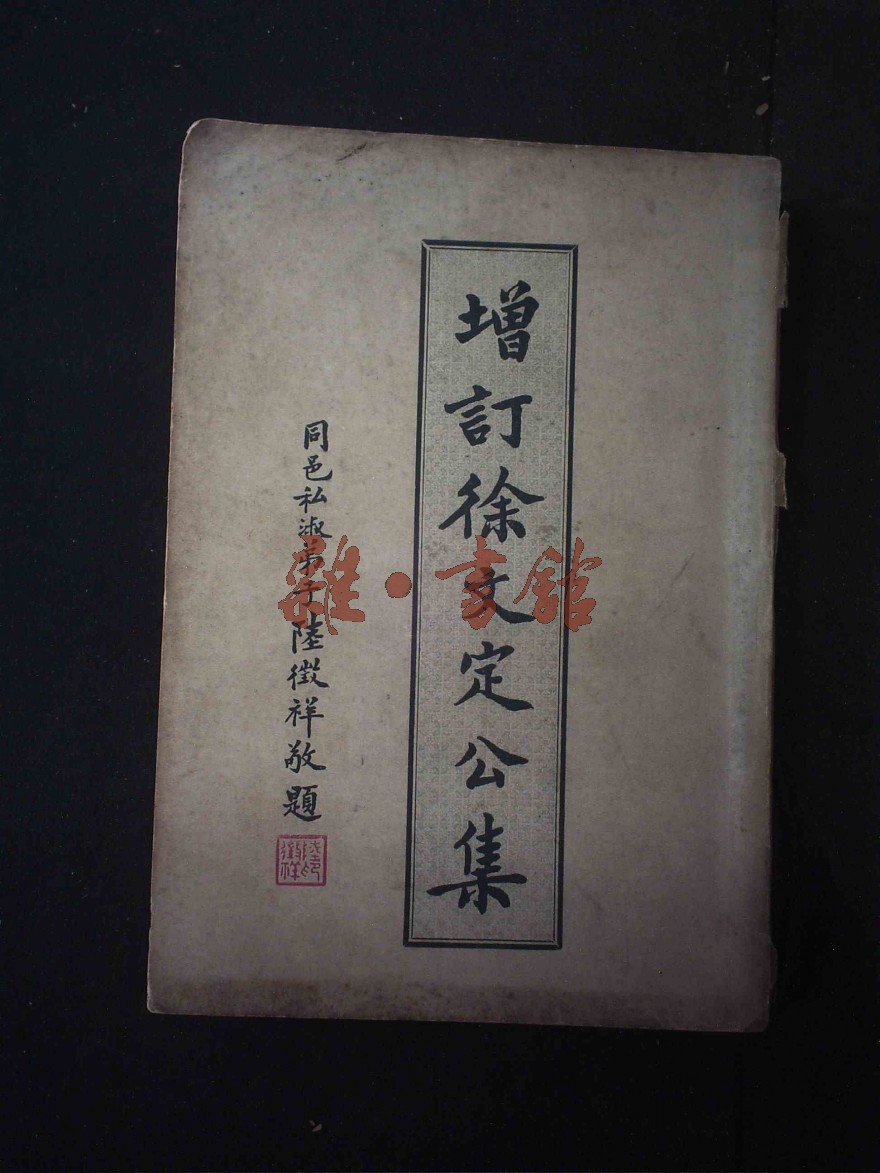 增訂徐文定公集
同邑私淑弟子陸徵祥敬題
陸徵祥印
雜·書館